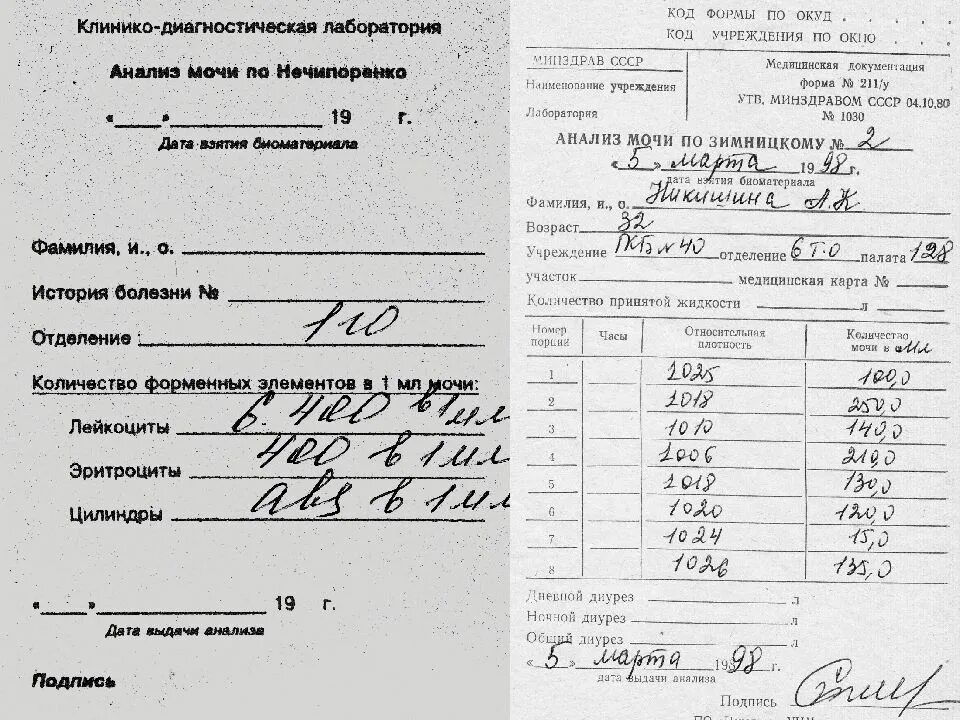 Клинико-диагностическая лаборатория
Анализ мочи по Нечипоренко
«___»____________ 19 г.
Дата взятия биоматериала
Фамилия, и., о.
История болезни №
Отделение
Количество форменных элементов в 1 мл мочи:
Лейкоциты 6.400 в 1 мл
Эритроциты 400 в 1 мл
Цилиндры abs в 1 мл
«___»____________ 19 г.
Дата выдачи анализа
Подпись
КОД ФОРМЫ ПО ОКУД . . . . .
КОД УЧРЕЖДЕНИЯ ПО ОКПО . . . .
МИНЗДРАВ СССР
Наименование учреждения
Лаборатория
Медицинская документация
форма № 211/у
УТВ. МИНЗДРАВОМ СССР 04.10.80
№ 1030
АНАЛИЗ МОЧИ ПО ЗИМНИЦКОМУ № 2
«5» марта 1998 г.
дата взятия биоматериала
Фамилия, и., о. Никишина А.К
Возраст 32
Учреждение ГКБ № 40 отделение 6 Т.О палата 128
участок медицинская карта №
Количество принятой жидкости л
Номер порции Часы Относительная плотность Количество мочи в мл
1 1025 100,0
2 1018 250,0
3 1010 140,0
4 1006 210,0
5 1018 130,0
6 1020 120,0
7 1024 15,0
8 1026 135,0
Дневной диурез л
Ночной диурез л
Общий диурез л
«5» марта 1998 г.
дата выдачи анализа
Подпись